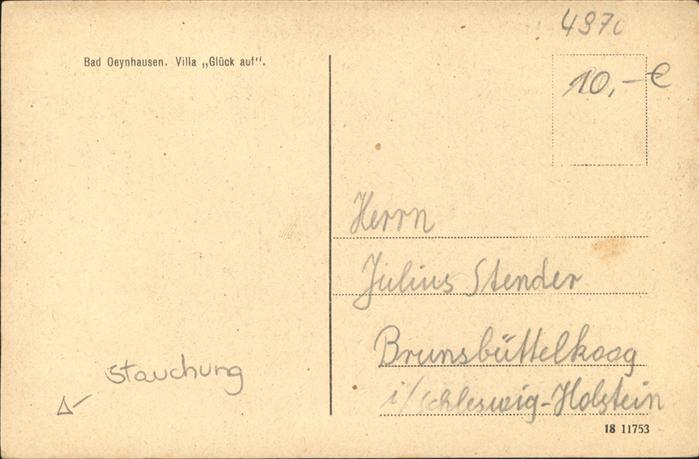 Bad Oeynhausen. Villa „Glück auf“.
10,-€
Herrn
Julius Stender
Brunsbüttelkoog
i/Schleswig-Holstein
Stauchung
18 11753